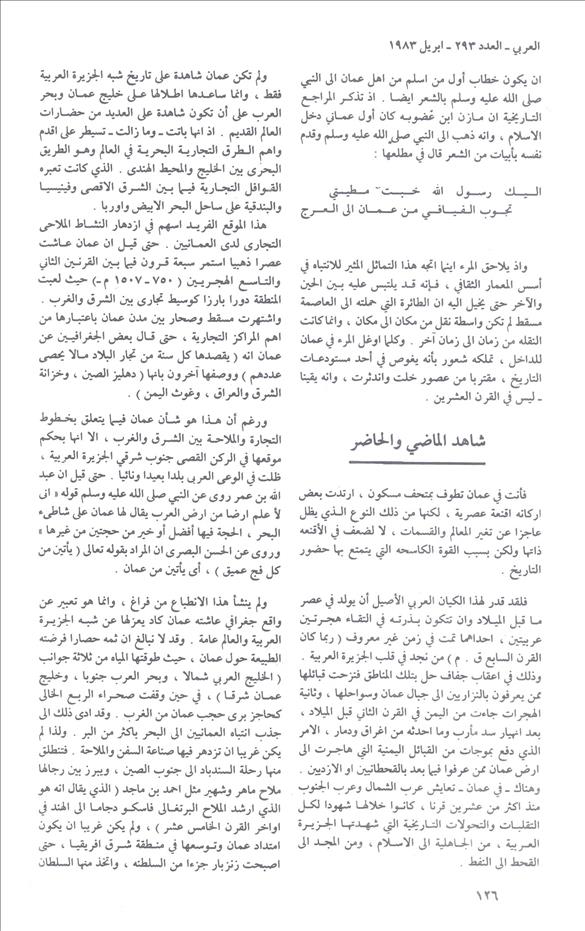 العربي - العدد ٢٩٣ - ابريل ١٩٨٣
ان يكون خطاب أول من اسلم من اهل عمان الى النبي
صلى الله عليه وسلم بالشعر ايضا . اذ تذكر المراجع
التاريخية ان مازن ابن غضوبه كان أول عماني دخل
الاسلام ، وانه ذهب الى النبي صلى الله عليه وسلم وقدم
نفسه بأبيات من الشعر قال في مطلعها :
اليك رسول الله خبت مطيتي
تجوب الفيافي من عمان الى العرج
واذ يلاحق المرء اينما اتجه هذا التماثل المثير للانتباه في
أسس المعمار الثقافي ، فإنه قد يلتبس عليه بين الحين
والآخر حتى يخيل اليه ان الطائرة التي حملته الى العاصمة
مسقط لم تكن واسطة نقل من مكان الى مكان ، وانما كانت
النقله من زمان الى زمان آخر . وكلما اوغل المرء في عمان
للداخل ، تملكه شعور بأنه يغوص في أحد مستودعات
التاريخ ، مقتربا من عصور خلت واندثرت ، وانه يقينا
- ليس في القرن العشرين .
شاهد الماضي والحاضر
فأنت في عمان تطوف بمتحف مسكون ، ارتدت بعض
اركانه اقنعة عصرية ، لكنها من ذلك النوع الذي يظل
عاجزا عن تغير المعالم والقسمات ، لا لضعف في الأقنعه
ذاتها ولكن بسبب القوة الكاسحه التي يتمتع بها حضور
التاريخ .
فلقد قدر لهذا الكيان العربي الأصيل أن يولد في عصر
ما قبل الميلاد وان تتكون بذرته في التقاء هجرتين
عربيتين ، احداهما تمت في زمن غير معروف ( ربما كان
القرن السابع ق . م ) من نجد في قلب الجزيرة العربية .
وذلك في اعقاب جفاف حل بتلك المناطق فنزحت قبائلها
ممن يعرفون بالنزاريين الى جبال عمان وسواحلها ، وثانية
الهجرات جاءت من اليمن في القرن الثاني قبل الميلاد ،
بعد انهيار سد مأرب وما احدثه من اغراق ودمار ، الامر
الذي دفع بموجات من القبائل اليمنية التي هاجرت الى
ارض عمان ممن عرفوا فيما بعد بالقحطانيين او الازديين .
وهناك - في عمان - تعايش عرب الشمال وعرب الجنوب
منذ اكثر من عشرين قرنا ، كانوا خلالها شهودا لكل
التقلبات والتحولات التاريخية التي شهدتها الجزيرة
العربية ، من الجاهلية الى الاسلام ، ومن المجد الى
القحط الى النفط .
ولم تكن عمان شاهدة على تاريخ شبه الجزيرة العربية
فقط ، وانما ساعدها اطلالها على خليج عمان وبحر
العرب على أن تكون شاهدة على العديد من حضارات
العالم القديم . اذ انها باتت - وما زالت - تسيطر على اقدم
واهم الطرق التجارية البحرية في العالم وهو الطريق
البحرى بين الخليج والمحيط الهندى . الذي كانت تعبره
القوافل التجارية فيما بين الشرق الاقصى وفينيسيا
والبندقية على ساحل البحر الابيض واوربا .
هذا الموقع الفريد اسهم في ازدهار النشاط الملاحى
التجارى لدى العمانيين . حتى قيل ان عمان عاشت
عصرا ذهبيا استمر سبعة قرون فيما بين القرنين الثاني
والتاسع الهجريين ( ٧٥٠ - ١٥٠٧ م - ) حيث لعبت
المنطقة دورا بارزا كوسيط تجارى بين الشرق والغرب .
واشتهرت مسقط وصحار بين مدن عمان باعتبارها من
اهم المراكز التجارية ، حتى قال بعض الجغرافيين عن
عمان انه ( يقصدها كل سنة من تجار البلاد مالا يحصى
عددهم ) ووصفها آخرون بانها ( دهليز الصين ، وخزانة
الشرق والعراق ، وغوث اليمن ) .
ورغم أن هذا هو شأن عمان فيما يتعلق بخطوط
التجارة والملاحة بين الشرق والغرب ، الا انها بحكم
موقعها في الركن القصى جنوب شرقي الجزيرة العربية ،
ظلت في الوعى العربى بلدا بعيدا ونائيا . حتى قيل ان عبد
الله بن عمر روى عن النبي صلى الله عليه وسلم قوله « انى
لأ علم ارضا من ارض العرب يقال لها عمان على شاطىء
البحر ، الحجة فيها أفضل أو خير من حجتين من غيرها »
وروى عن الحسن البصرى ان المراد بقوله تعالى ( يأتين من
كل فج عميق ) ، أى يأتين من عمان .
ولم ينشأ هذا الانطباع من فراغ ، وانما هو تعبير عن
واقع جغرافي عاشته عمان كاد يعزلها عن شبه الجزيرة
العربية والعالم عامة . وقد لا نبالغ ان ثمه حصارا فرضته
الطبيعة حول عمان ، حيث طوقتها المياه من ثلاثة جوانب
( الخليج العربي شمالا ، وبحر العرب جنوبا ، وخليج
عمان شرقا ) ، في حين وقفت صحراء الربع الخالى
كحاجز برى حجب عمان من الغرب . وقد ادى ذلك الى
جذب انتباه العمانيين الى البحر بأكثر من البر . ولذا لم
يكن غريبا ان تزدهر فيها صناعة السفن والملاحة . فتنطلق
منها رحلة السندباد الى جنوب الصين ، ويبرز بين رجالها
ملاح ماهر وشهير مثل احمد بن ماجد ( الذي يقال انه هو
الذي ارشد الملاح البرتغالى فاسكو دجاما الى الهند في
اواخر القرن الخامس عشر ) ، ولم يكن غريبا ان يكون
امتداد عمان وتوسعها في منطقة شرق افريقيا ، حتى
اصبحت زنزبار جزءا من السلطنه ، واتخذ منها السلطان
١٢٦